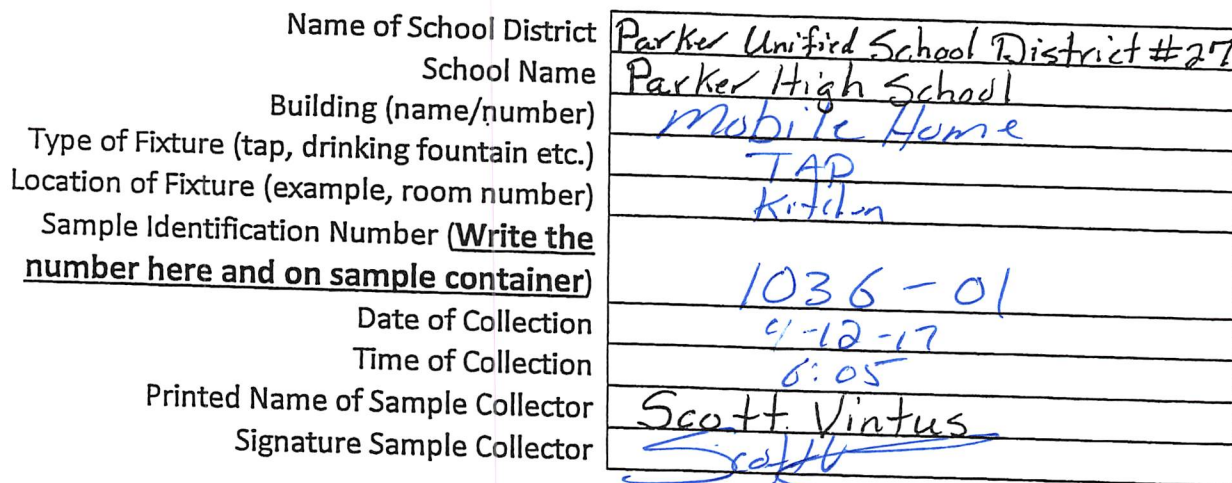 Name of School District Parker Unified School District #27
School Name Parker High School
Building (name/number) Mobile Home
Type of Fixture (tap, drinking fountain etc.) TAP
Location of Fixture (example, room number) Kitchen
Sample Identification Number (Write the
number here and on sample container) 1036-01
Date of Collection 4-12-17
Time of Collection 6:05
Printed Name of Sample Collector Scott Vintus
Signature Sample Collector